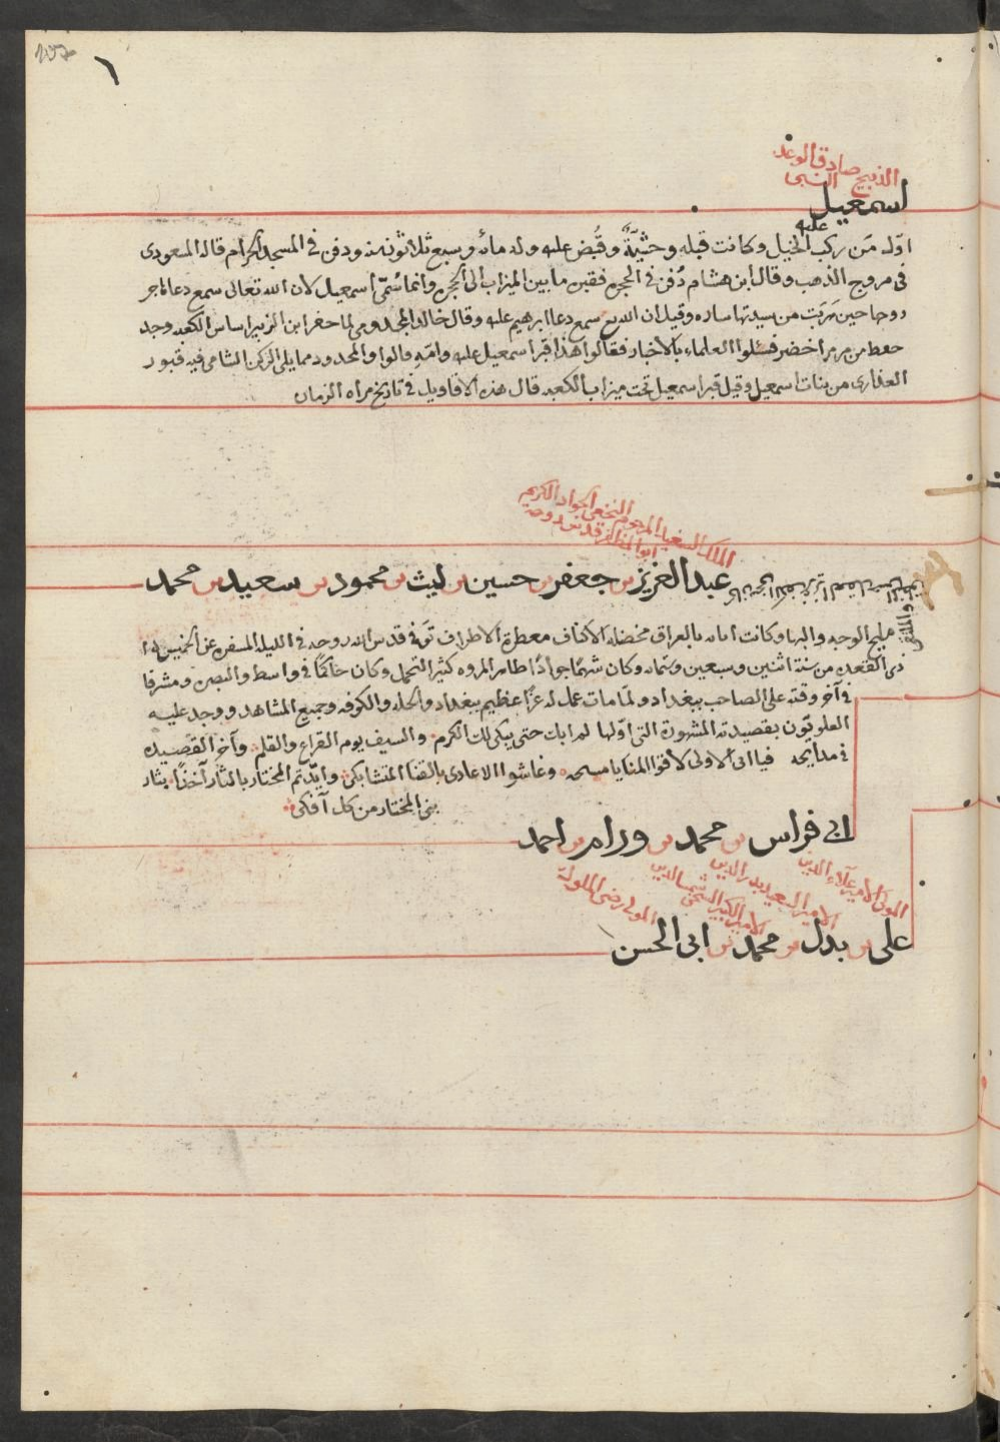 ١
صادق الوعد
الذبيح النبى
اسمعيل
عليه
اوّل من ركب الخيل وكانت قبله وحشيّة وقُبض عليه وله مائة وسبع ثلاثون سنة ودفن فى المسجد الحرام قاله المسعودى
فى مروج الذهب وقال ابن هشام دُفن فى الحجر فقبره ما بين الميزاب الى الحجر وانما سُمّى اسمعيل لان الله تعالى سمع دعا هاجر
حين هربت من سيدتها ساره وقيل ان الله سمع دعا ابرهيم عليه وقال خالد المخدومى لما حفر ابن الزبير اساس الكعبه وجد
من مرمر اخضر فسئلوا العلماء بالاخبار فقالوا هذا قبر اسمعيل عليه وامّه قالوا والمحدود مما يلى الركن الشامى فيه قبور
العذارى من بنات اسمعيل وقيل قبر اسمعيل تحت ميزاب الكعبه قال هذه الاقاويل فى تاريخ مرآه الزمان
الملك السعيد المرحوم النخعى الجواد الكريم
ابو المظفر قدس روحه
عبد العزيز بن جعفر بن حسين بن ليث بن محمود بن سعيد بن محمد
مليح الوجه والبها وكانت ايامه بالعراق مخضله الاكناف معطرة الاطراف توفى قدس الله روحه فى الليله المسفره عن الخميس
ذى القعده من سنة اثنين وسبعين وستمائه وكان شهمًا جوادًا ظاهر المروه كثير التجمل وكان حاكمًا فى واسط والبصره ومشرفا
فى آخر وقته على الصاحب ببغداد ولما مات عمل له عزاء عظيم ببغداد والحله والكوفه وجميع المشاهد ووجد عليه
العلويّون بقصيدته المشهورة التى اوّلها لمرابات حتى يبكى لك الكرم والسيف يوم القراع والقلم وآخر القصيده
فى مدايحه فيا ابن الاولى لاقوا المنايا وغاشوا الاعادى بالقنا المتشابك وايّدتم المختار بالثار آخذًا بثار
بنى المختار من كل آفك
ابى فراس بن محمد بن ورام بن احمد
المولى الامير علاء الدين
الامير السعيد بدر الدين
الامير الكبير شمس الدين
المولى رضى
على بن بدل بن محمد بن ابى الحسن